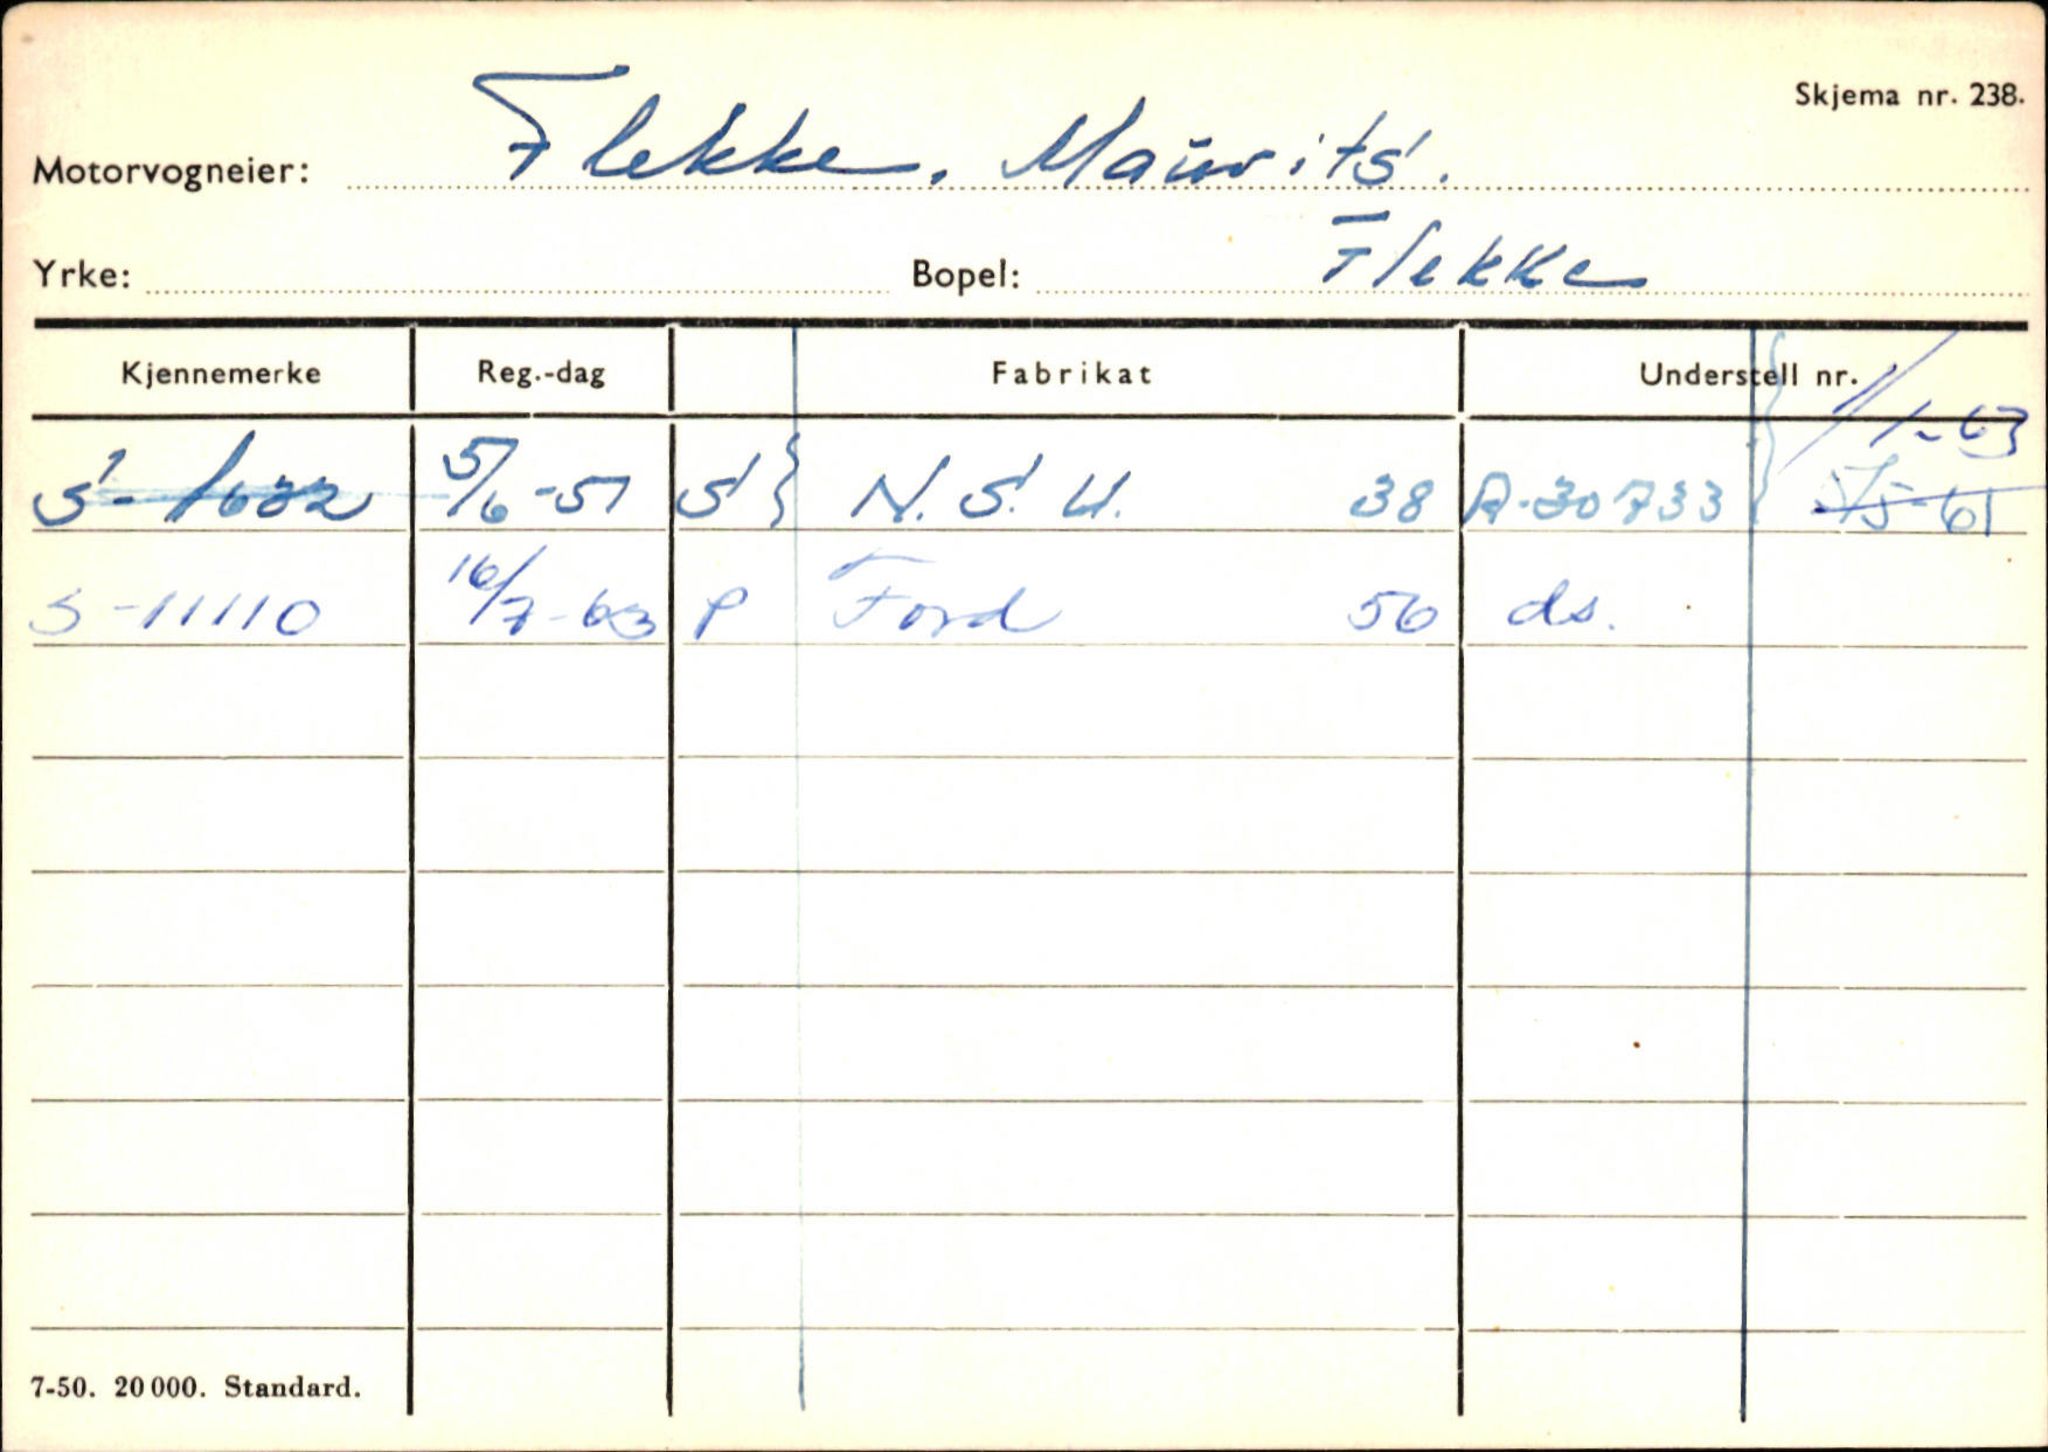 Skjema nr. 238.
Motorvogneier: Flekke, Maurits.
Yrke: Bopel: Flekke
Kjennemerke Reg.-dag Fabrikat Understell nr.
1/1-63
S-1682 5/6-51 S N.S.U. 38 A-30733
S-11110 16/7-63 P Ford 56 ds.
7-50. 20 000. Standard.